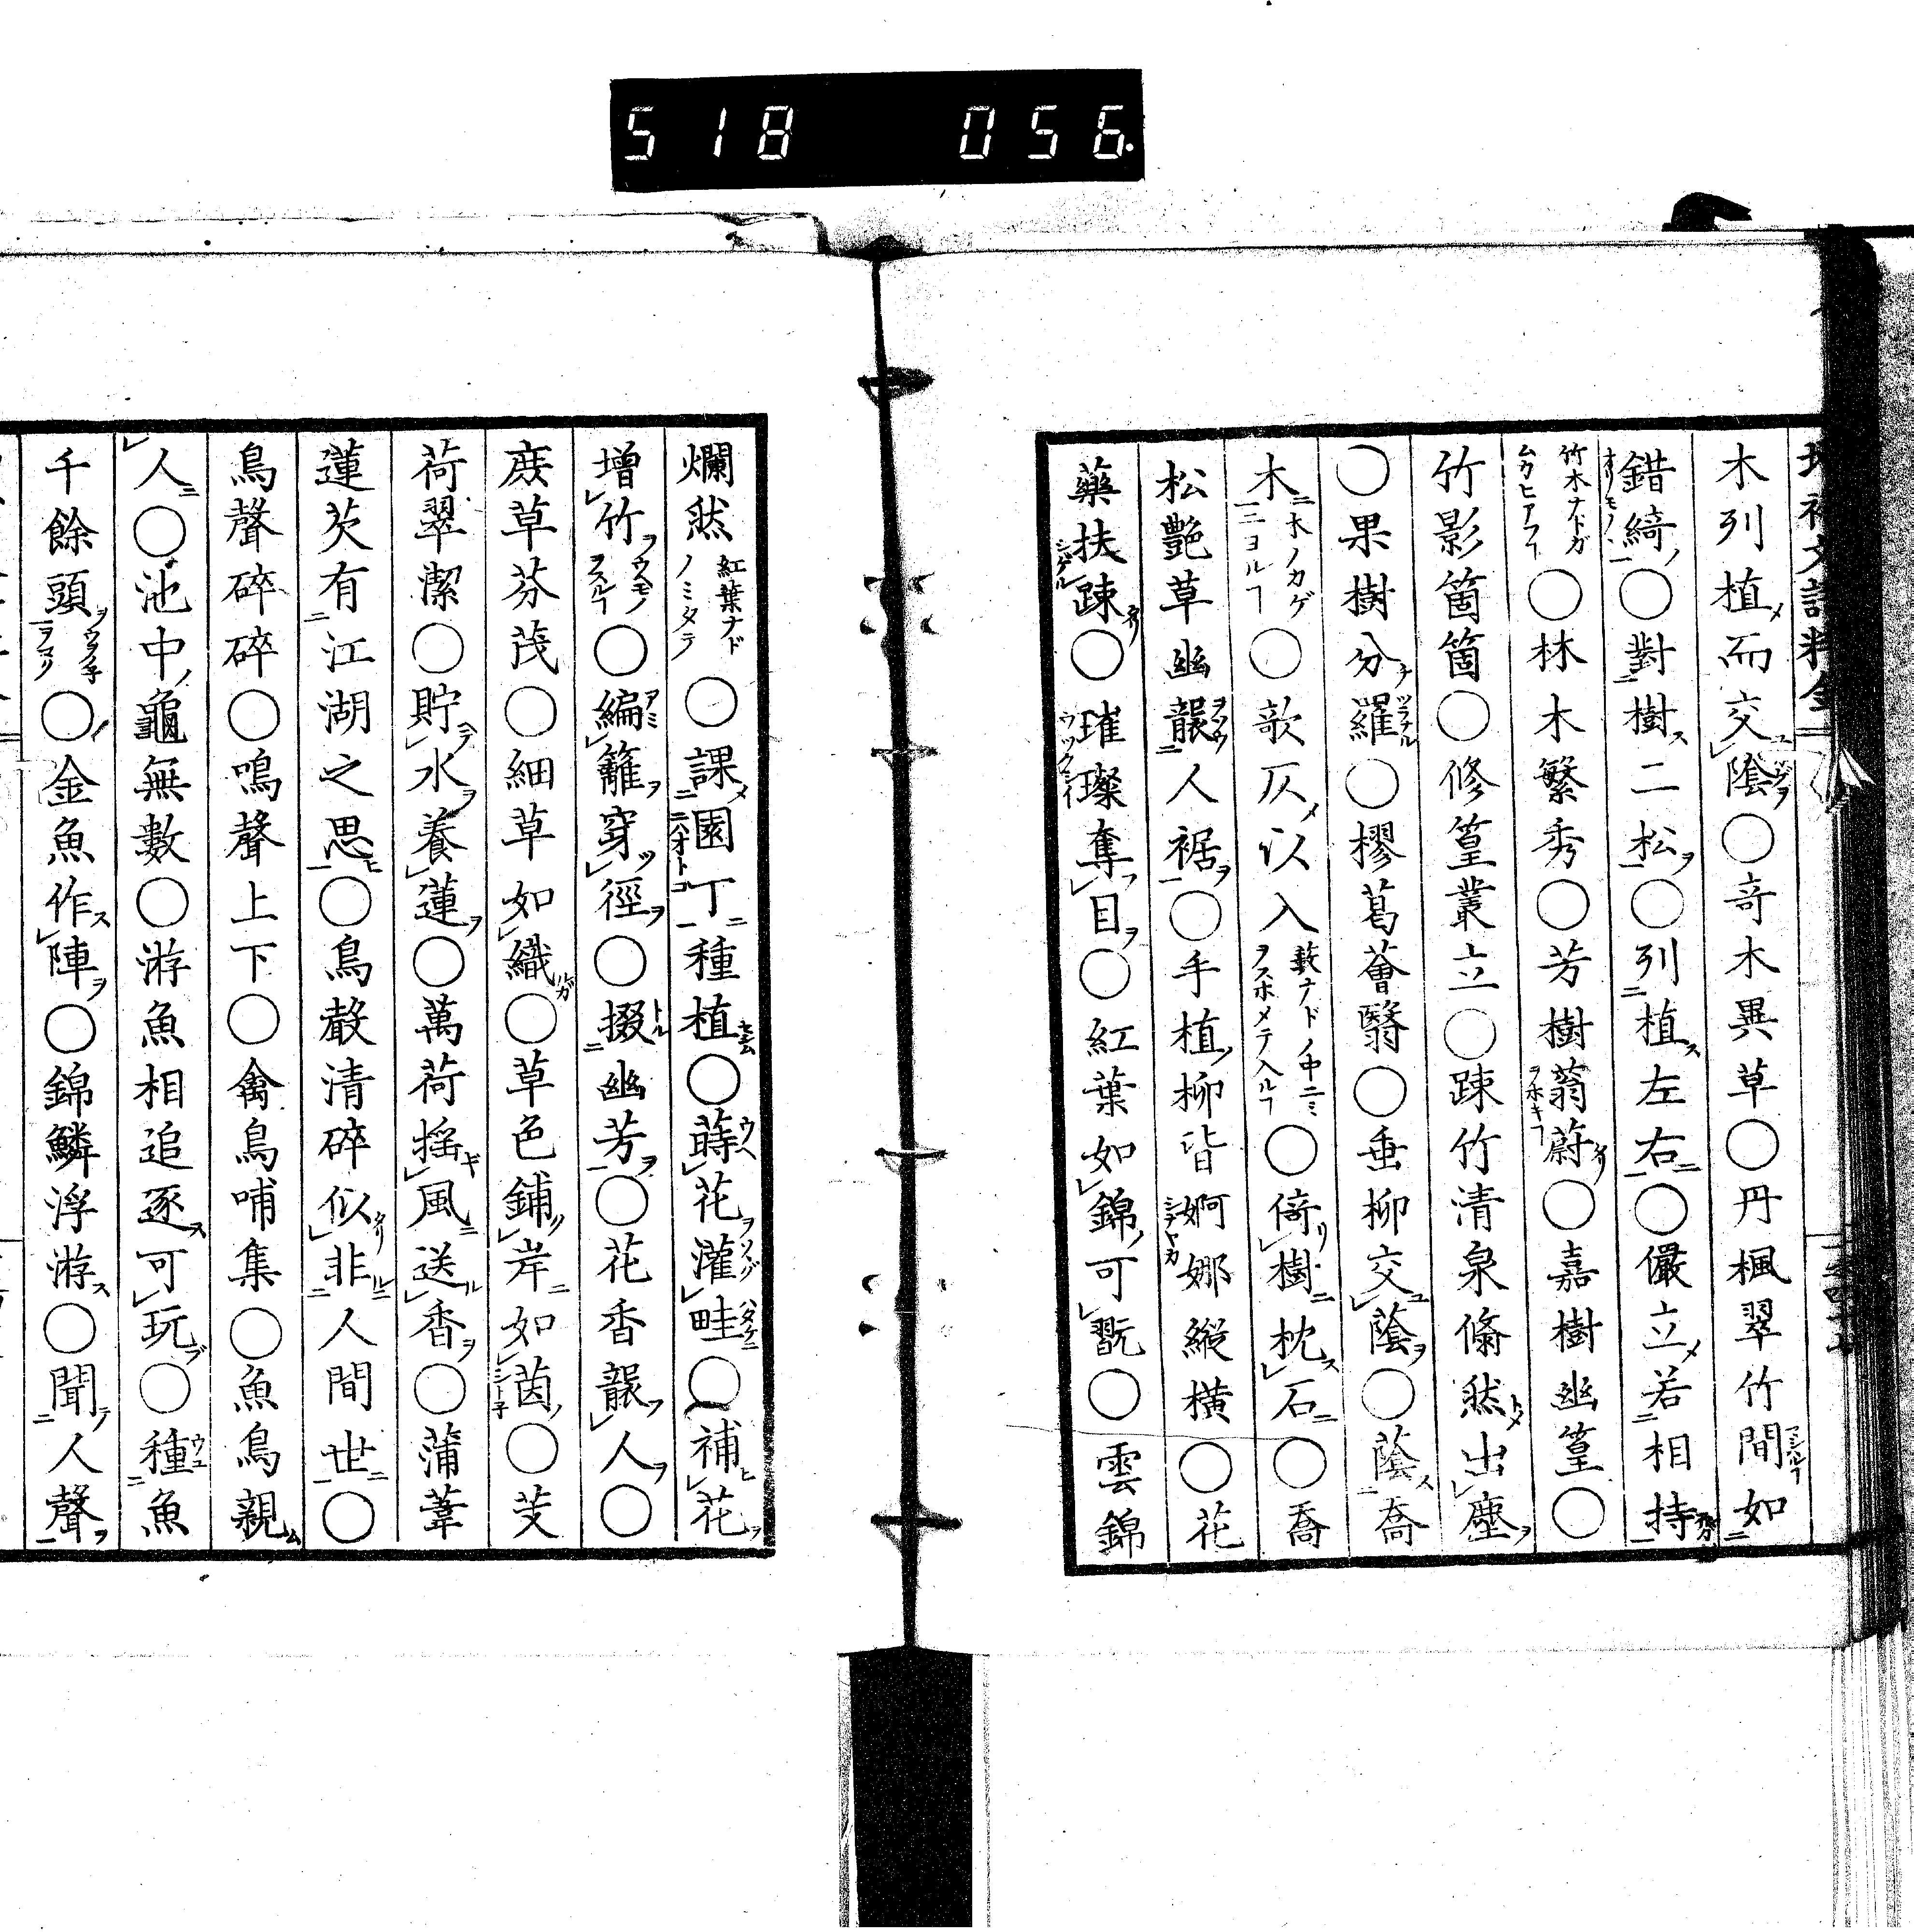 518 056
木列植而交陰○奇木異草○丹楓翠竹間如
錯綺○對樹二松○列植左右○儼立若相持
竹木ナドガムカヒアフ○林木繁秀○芳樹蓊蔚○嘉樹幽篁○
竹影箇箇○修篁叢立○踈竹清泉翛然出塵
○果樹分羅○樛葛薈翳○垂柳交蔭○蔭喬
木木ノカゲニヨルヿ○欹仄以入藪ナドノ中ニミヲスホメテ入ルヿ○倚樹枕石○喬
松艶草幽襲人裾○手植柳皆婀娜縱横○花
藥扶踈○璀璨奪目○紅葉如錦可翫○雲錦
爛然紅葉ナドノミタテ○課園丁種植○蒔花灌畦○補花
增竹○編籬穿徑○掇幽芳○花香襲人○
庻草芬茂○細草如織○草色鋪岸如茵○芰
荷翠潔○貯水養蓮○萬荷揺風送香○蒲葦
蓮芡有江湖之思○鳥聲清碎似非人間世○
鳥聲碎碎○鳴聲上下○禽鳥哺集○魚鳥親
人○池中龜無數○游魚相追逐可玩○種魚
千餘頭○金魚作陣○錦鱗浮游○聞人聲